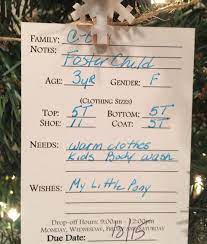 FAMILY:
NOTES: Foster Child
AGE: 3yr GENDER: F
(CLOTHING SIZES)
TOP: 5T BOTTOM: 5T
SHOE: 11 COAT: 5T
NEEDS: Warm clothes
Kids Body wash
WISHES: My Little Pony
Drop-off Hours: 9:00am - 12:00pm
MONDAY, WEDNESDAY, FRIDAY AND SATURDAY
Due Date: